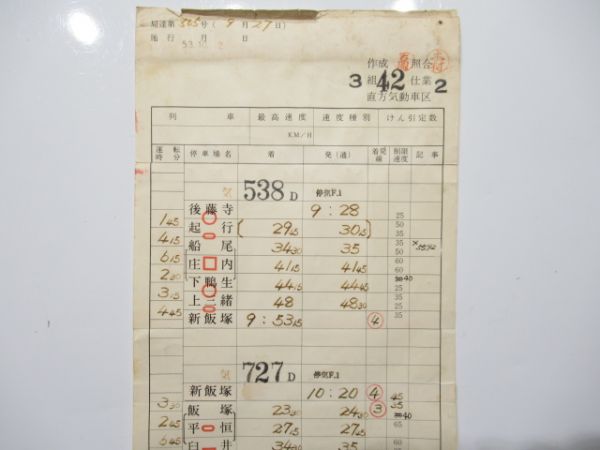 局達第 505号 ( 9月 27日)
施行 月 日
53.10.2
作成 照合
3組 42 仕業 2
直方気動車区
列 車 最高速度 速度種別 けん引定数
KM/H
運転時分 停車場名 着 発(通) 着発線 制限速度 記事
538D 停気F.1
後藤寺 9:28 25
1 45 起行 ( 29 15 30 15 ) 50 35
4 15 船尾 34 30 35 35 50
6 15 庄内 41 15 41 45 60 60
2 30 下鴨生 44 15 44 45 40
3 15 上三緒 48 48 30 25 35
4 45 新飯塚 9:53 15 ④ 35
727D 停気F.1
新飯塚 10:20 ④ 45
3 30 飯塚 23 30 24 30 ③ 35 40
2 45 平恒 27 15 27 45 65
6 45 臼井 34 30 35 60